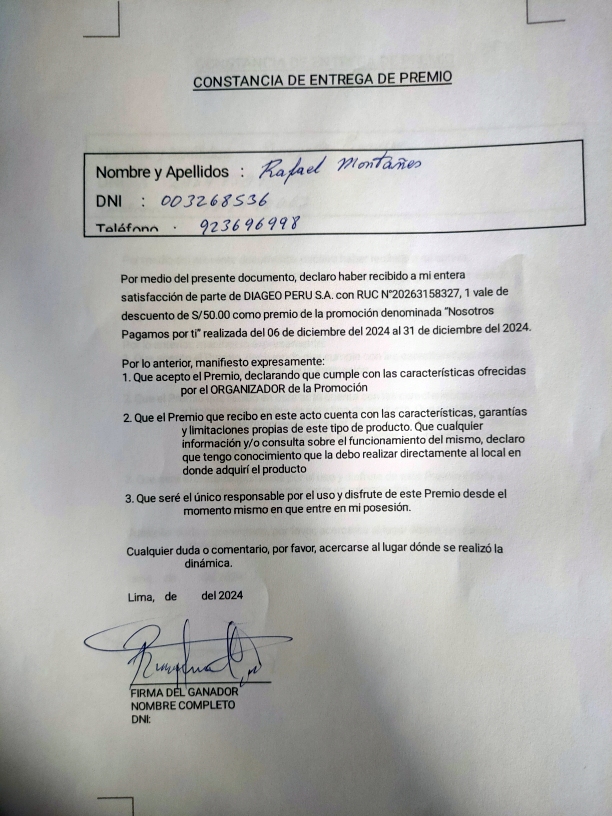 CONSTANCIA DE ENTREGA DE PREMIO
Nombre y Apellidos : Rafael Montañes
DNI : 003268536
Teléfono : 923696998
Por medio del presente documento, declaro haber recibido a mi entera
satisfacción de parte de DIAGEO PERU S.A. con RUC N°20263158327, 1 vale de
descuento de S/50.00 como premio de la promoción denominada "Nosotros
Pagamos por ti" realizada del 06 de diciembre del 2024 al 31 de diciembre del 2024.
Por lo anterior, manifiesto expresamente:
1. Que acepto el Premio, declarando que cumple con las características ofrecidas
por el ORGANIZADOR de la Promoción
2. Que el Premio que recibo en este acto cuenta con las características, garantías
y limitaciones propias de este tipo de producto. Que cualquier
información y/o consulta sobre el funcionamiento del mismo, declaro
que tengo conocimiento que la debo realizar directamente al local en
donde adquirí el producto
3. Que seré el único responsable por el uso y disfrute de este Premio desde el
momento mismo en que entre en mi posesión.
Cualquier duda o comentario, por favor, acercarse al lugar dónde se realizó la
dinámica.
Lima, de del 2024
FIRMA DEL GANADOR
NOMBRE COMPLETO
DNI: